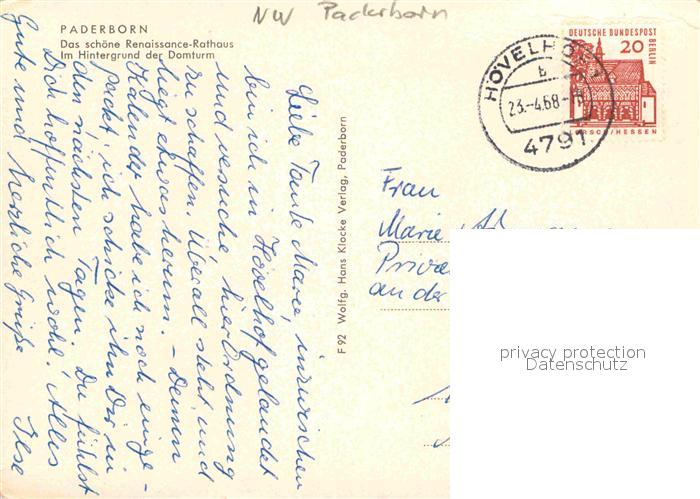 NW Paderborn
PADERBORN
Das schöne Renaissance-Rathaus
Im Hintergrund der Domturm
Liebe Tante Marie, inzwischen
bin ich in Hövelhof gelandet
und versuche hier Ordnung
zu schaffen. Überall steht und
liegt etwas herum. - Deinen
Kalender habe ich noch einge-
packt, ich schicke ihn Dir in
den nächsten Tagen. Du fühlst
Dich hoffentlich wohl! Alles
Gute und herzliche Grüße Ilse
F 92 Wolfg. Hans Klocke Verlag, Paderborn
HÖVELHOF
b
23.-4.68-
4791
DEUTSCHE BUNDESPOST
BERLIN
20
LORSCH/HESSEN
Frau
Marie
an der
privacy protection
Datenschutz